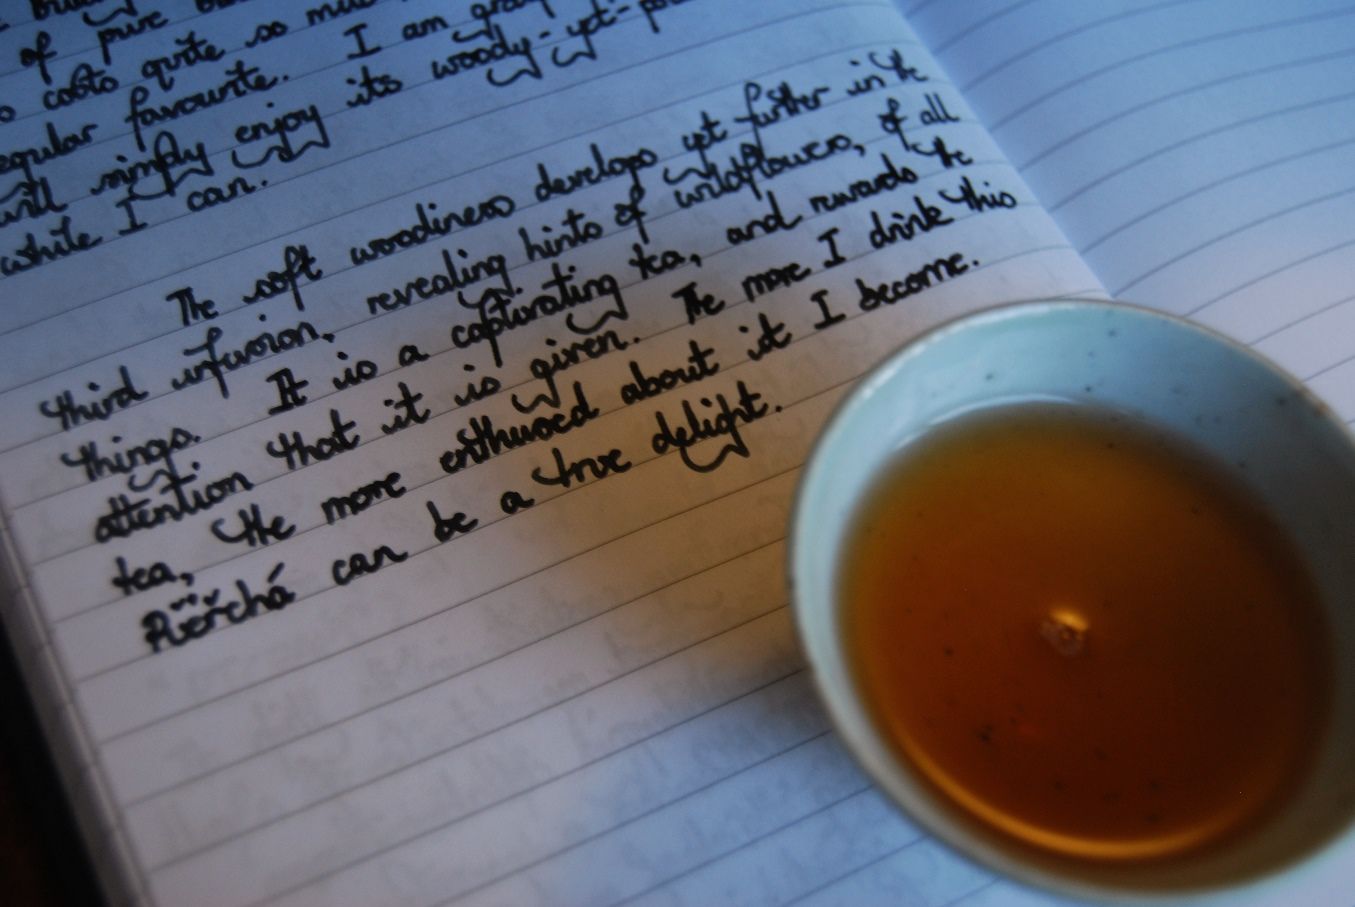 of pure
costs quite so much
regular favourite. I am
will simply enjoy its woody-yet-
while I can.
The soft woodiness develops yet further in the
third infusion, revealing hints of wildflowers, of all
things. It is a captivating tea, and rewards the
attention that it is given. The more I drink this
tea, the more enthused about it I become.
Pǔěřchá can be a true delight.